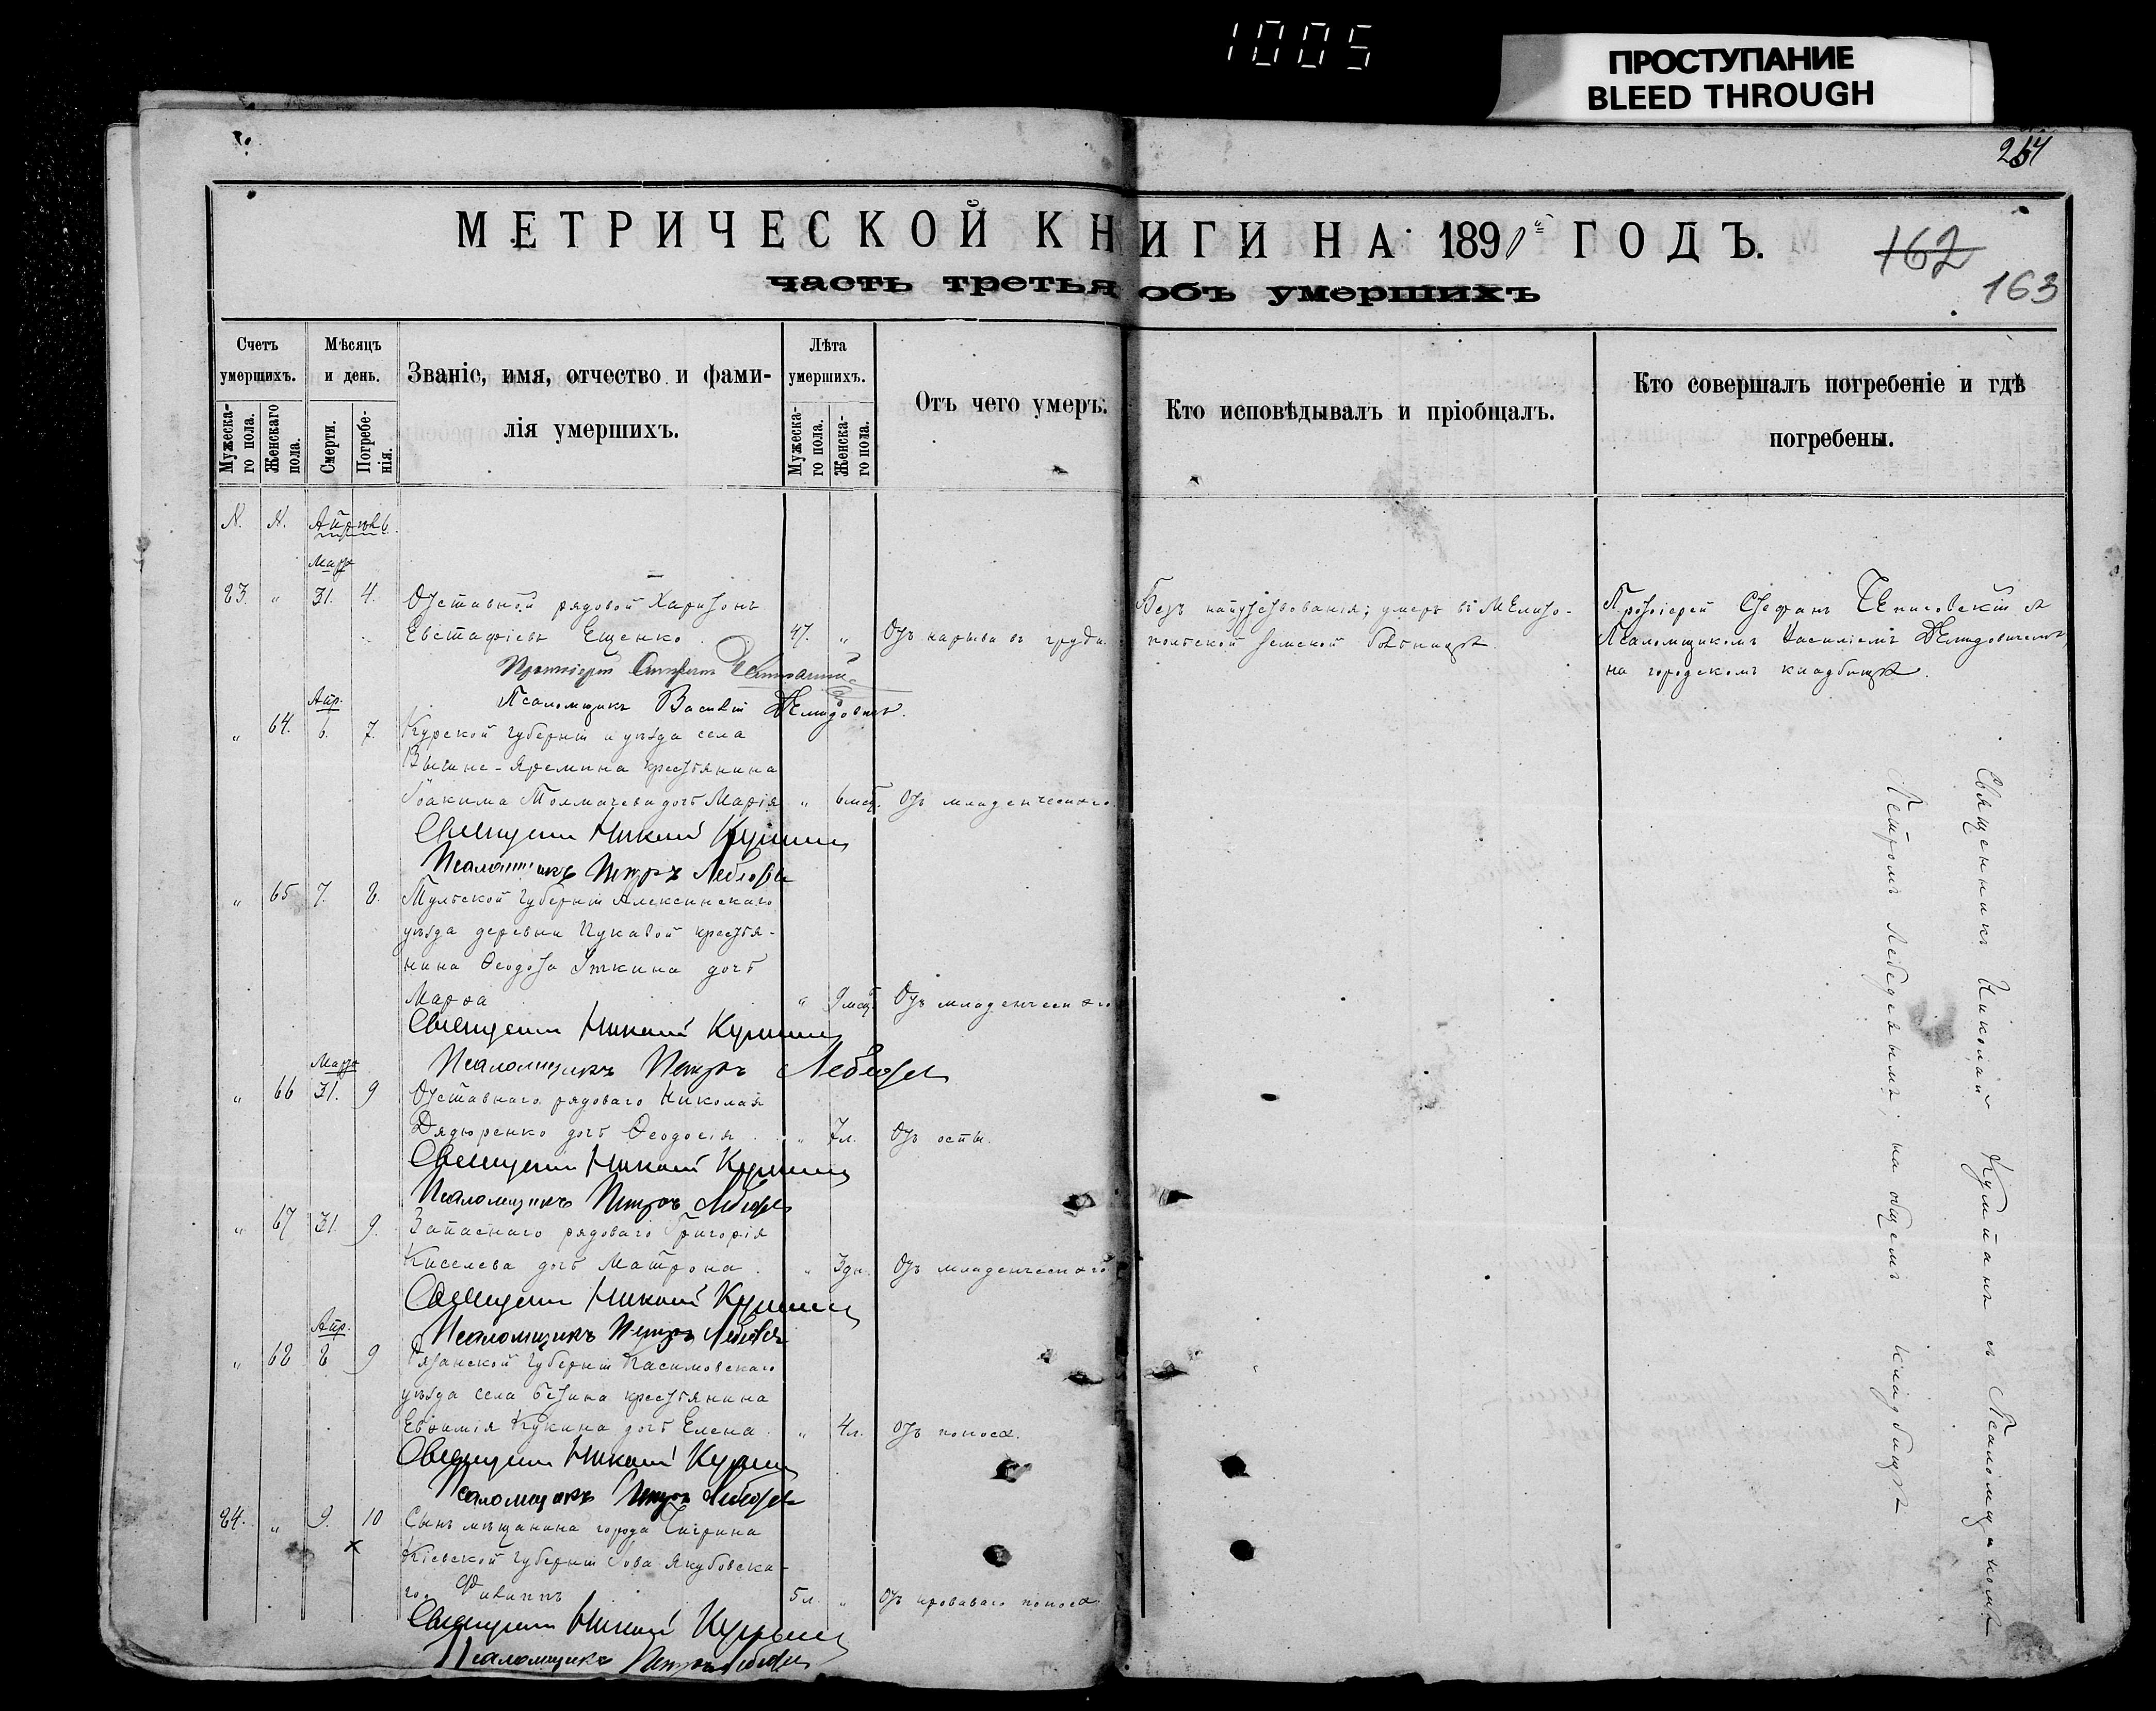 1005
ПРОСТУПАНИЕ
BLEED THROUGH
МЕТРИЧЕСКОЙ КНИГИ НА 1891й ГОДЪ.
162
163
часть третья объ умершихъ
Счетъ умершихъ.
Мѣсяцъ и день.
Званіе, имя, отчество и фами-
лія умершихъ.
Лѣта умершихъ.
Отъ чего умеръ.
Кто исповѣдывалъ и пріобщалъ.
Кто совершалъ погребеніе и гдѣ
погребены.
Мужеска-
го пола.
Женскаго
пола.
Смерти.
Погребе-
нія.
Мужеска-
го пола.
Женска-
го пола.
N. N. Апрѣль.
Март
83. " 31. 4. Отставной рядовой Харитонъ
Евстафіевъ Ещенко 47. " Отъ нарыва въ груди.
Безъ напутствованія; умеръ въ Мелито-
польской земской больницѣ.
Протоіерей Стефанъ
Псаломщикомъ Василіемъ Демидовичемъ,
на городскомъ кладбищѣ.
Протоіерей Стефанъ
Псаломщикъ Василій Демидовичъ.
Апр.
" 64. 6. 7. Курской губерніи и уѣзда села
крестьянина
Іоакима Толмачева дочь Марія " 6 мсц. Отъ младенческаго
Священникъ Николай
Псаломщикъ Петръ Лебедевъ
" 65 7. 8. Тульской губерніи Алексинскаго
уѣзда деревни крестья-
нина Ѳеодота дочь
Марѳа " 9 мсц. Отъ младенческаго
Священникъ Николай
Псаломщикъ Петръ Лебедевъ
Март
" 66 31. 9 Отставнаго рядоваго Николая
Дядюренко дочь Ѳеодосія " 7 л. Отъ оспы.
Священникъ Николай
Псаломщикъ Петръ Лебедевъ
" 67 31. 9. Запаснаго рядоваго Григорія
Киселева дочь Матрона. " 3 дн. Отъ младенческаго
Священникъ Николай
Псаломщикъ Петръ Лебедевъ
Апр.
" 68 8 9 Рязанской губерніи Касимовскаго
уѣзда села крестьянина
Евѳимія Кукина дочь Елена " 4 л. Отъ поноса.
Священникъ Николай
Псаломщикъ Петръ Лебедевъ
84. " 9. 10 Сынъ мѣщанина города Чигрина
Кіевской губерніи Якубовска-
го Филиппъ 5 л. " Отъ кроваваго поноса.
Священникъ Николай
Псаломщикъ Петръ Лебедевъ
Священникъ Николай с Псаломщикомъ
Петромъ Лебедевымъ, на общемъ кладбищѣ